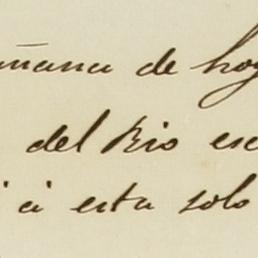 mañana de hoy
del Rio esc
i á esta solo